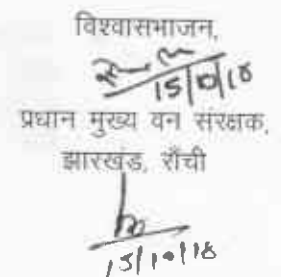 विश्वासभाजन,
15/10/18
प्रधान मुख्य वन संरक्षक,
झारखंड, राँची
15/10/18